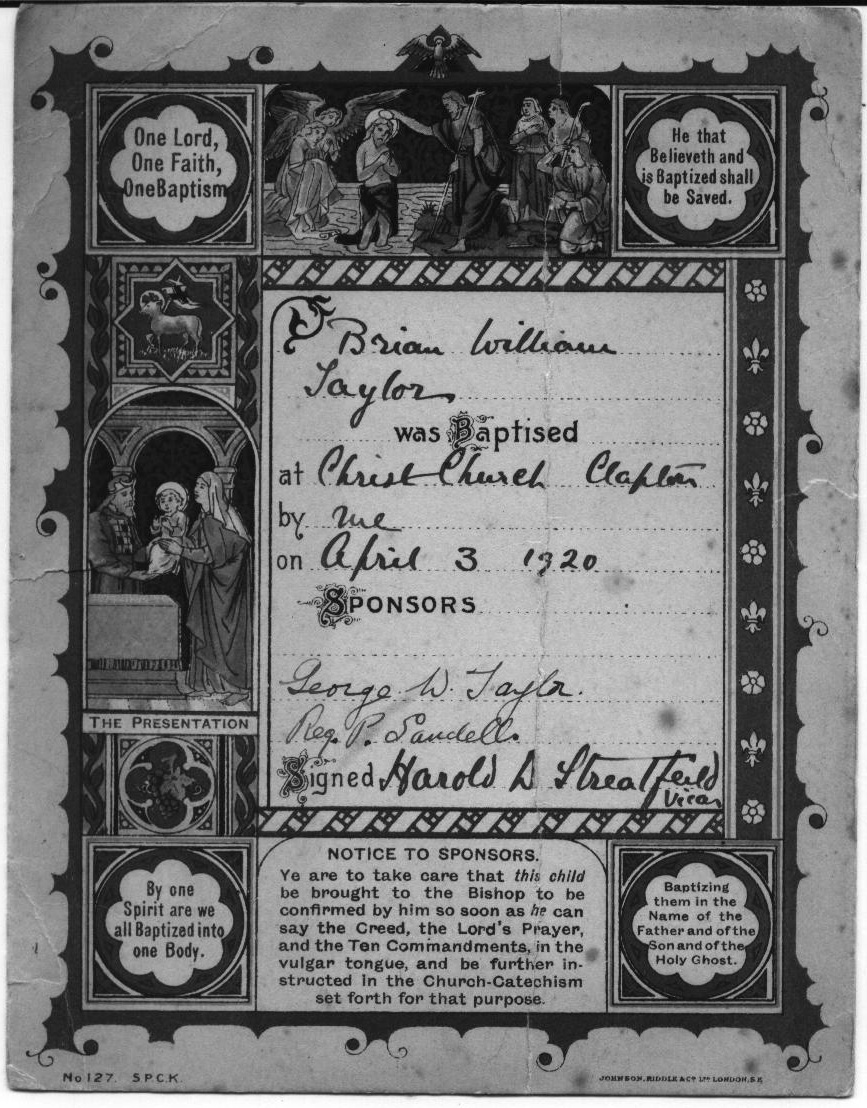 One Lord,
One Faith,
One Baptism
He that
Believeth and
is Baptized shall
be Saved.
Brian William
Taylor
was Baptised
at Christ Church Clapton
by me
on April 3 1920
SPONSORS
George W. Taylor.
Reg. P. Sandell.
Signed Harold D Streatfeild
Vicar
THE PRESENTATION
By one
Spirit are we
all Baptized into
one Body.
NOTICE TO SPONSORS.
Ye are to take care that this child
be brought to the Bishop to be
confirmed by him so soon as he can
say the Creed, the Lord's Prayer,
and the Ten Commandments, in the
vulgar tongue, and be further in-
structed in the Church-Catechism
set forth for that purpose.
Baptizing
them in the
Name of the
Father and of the
Son and of the
Holy Ghost.
No 127. S.P.C.K.
JOHNSON, RIDDLE & Co LTD LONDON, S.E.